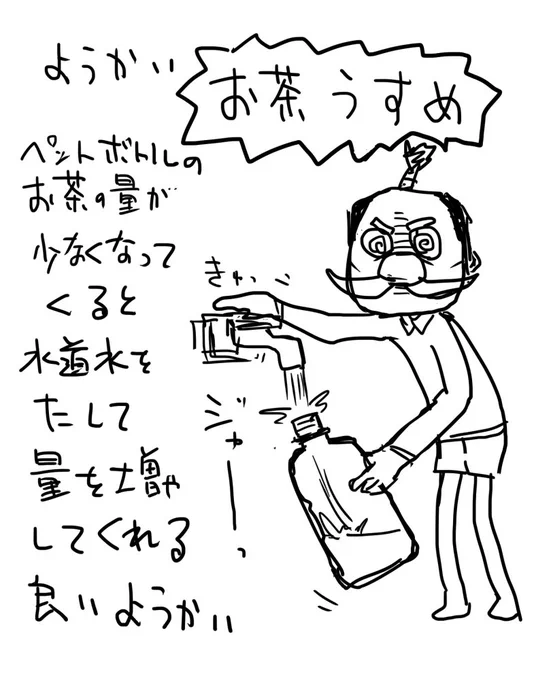 ようかい
お茶うすめ
ペットボトルの
お茶の量が
少なくなって
くると
水道水を
たして
量を増や
してくれる
良いようかい
きゅっ
ジャーーっ